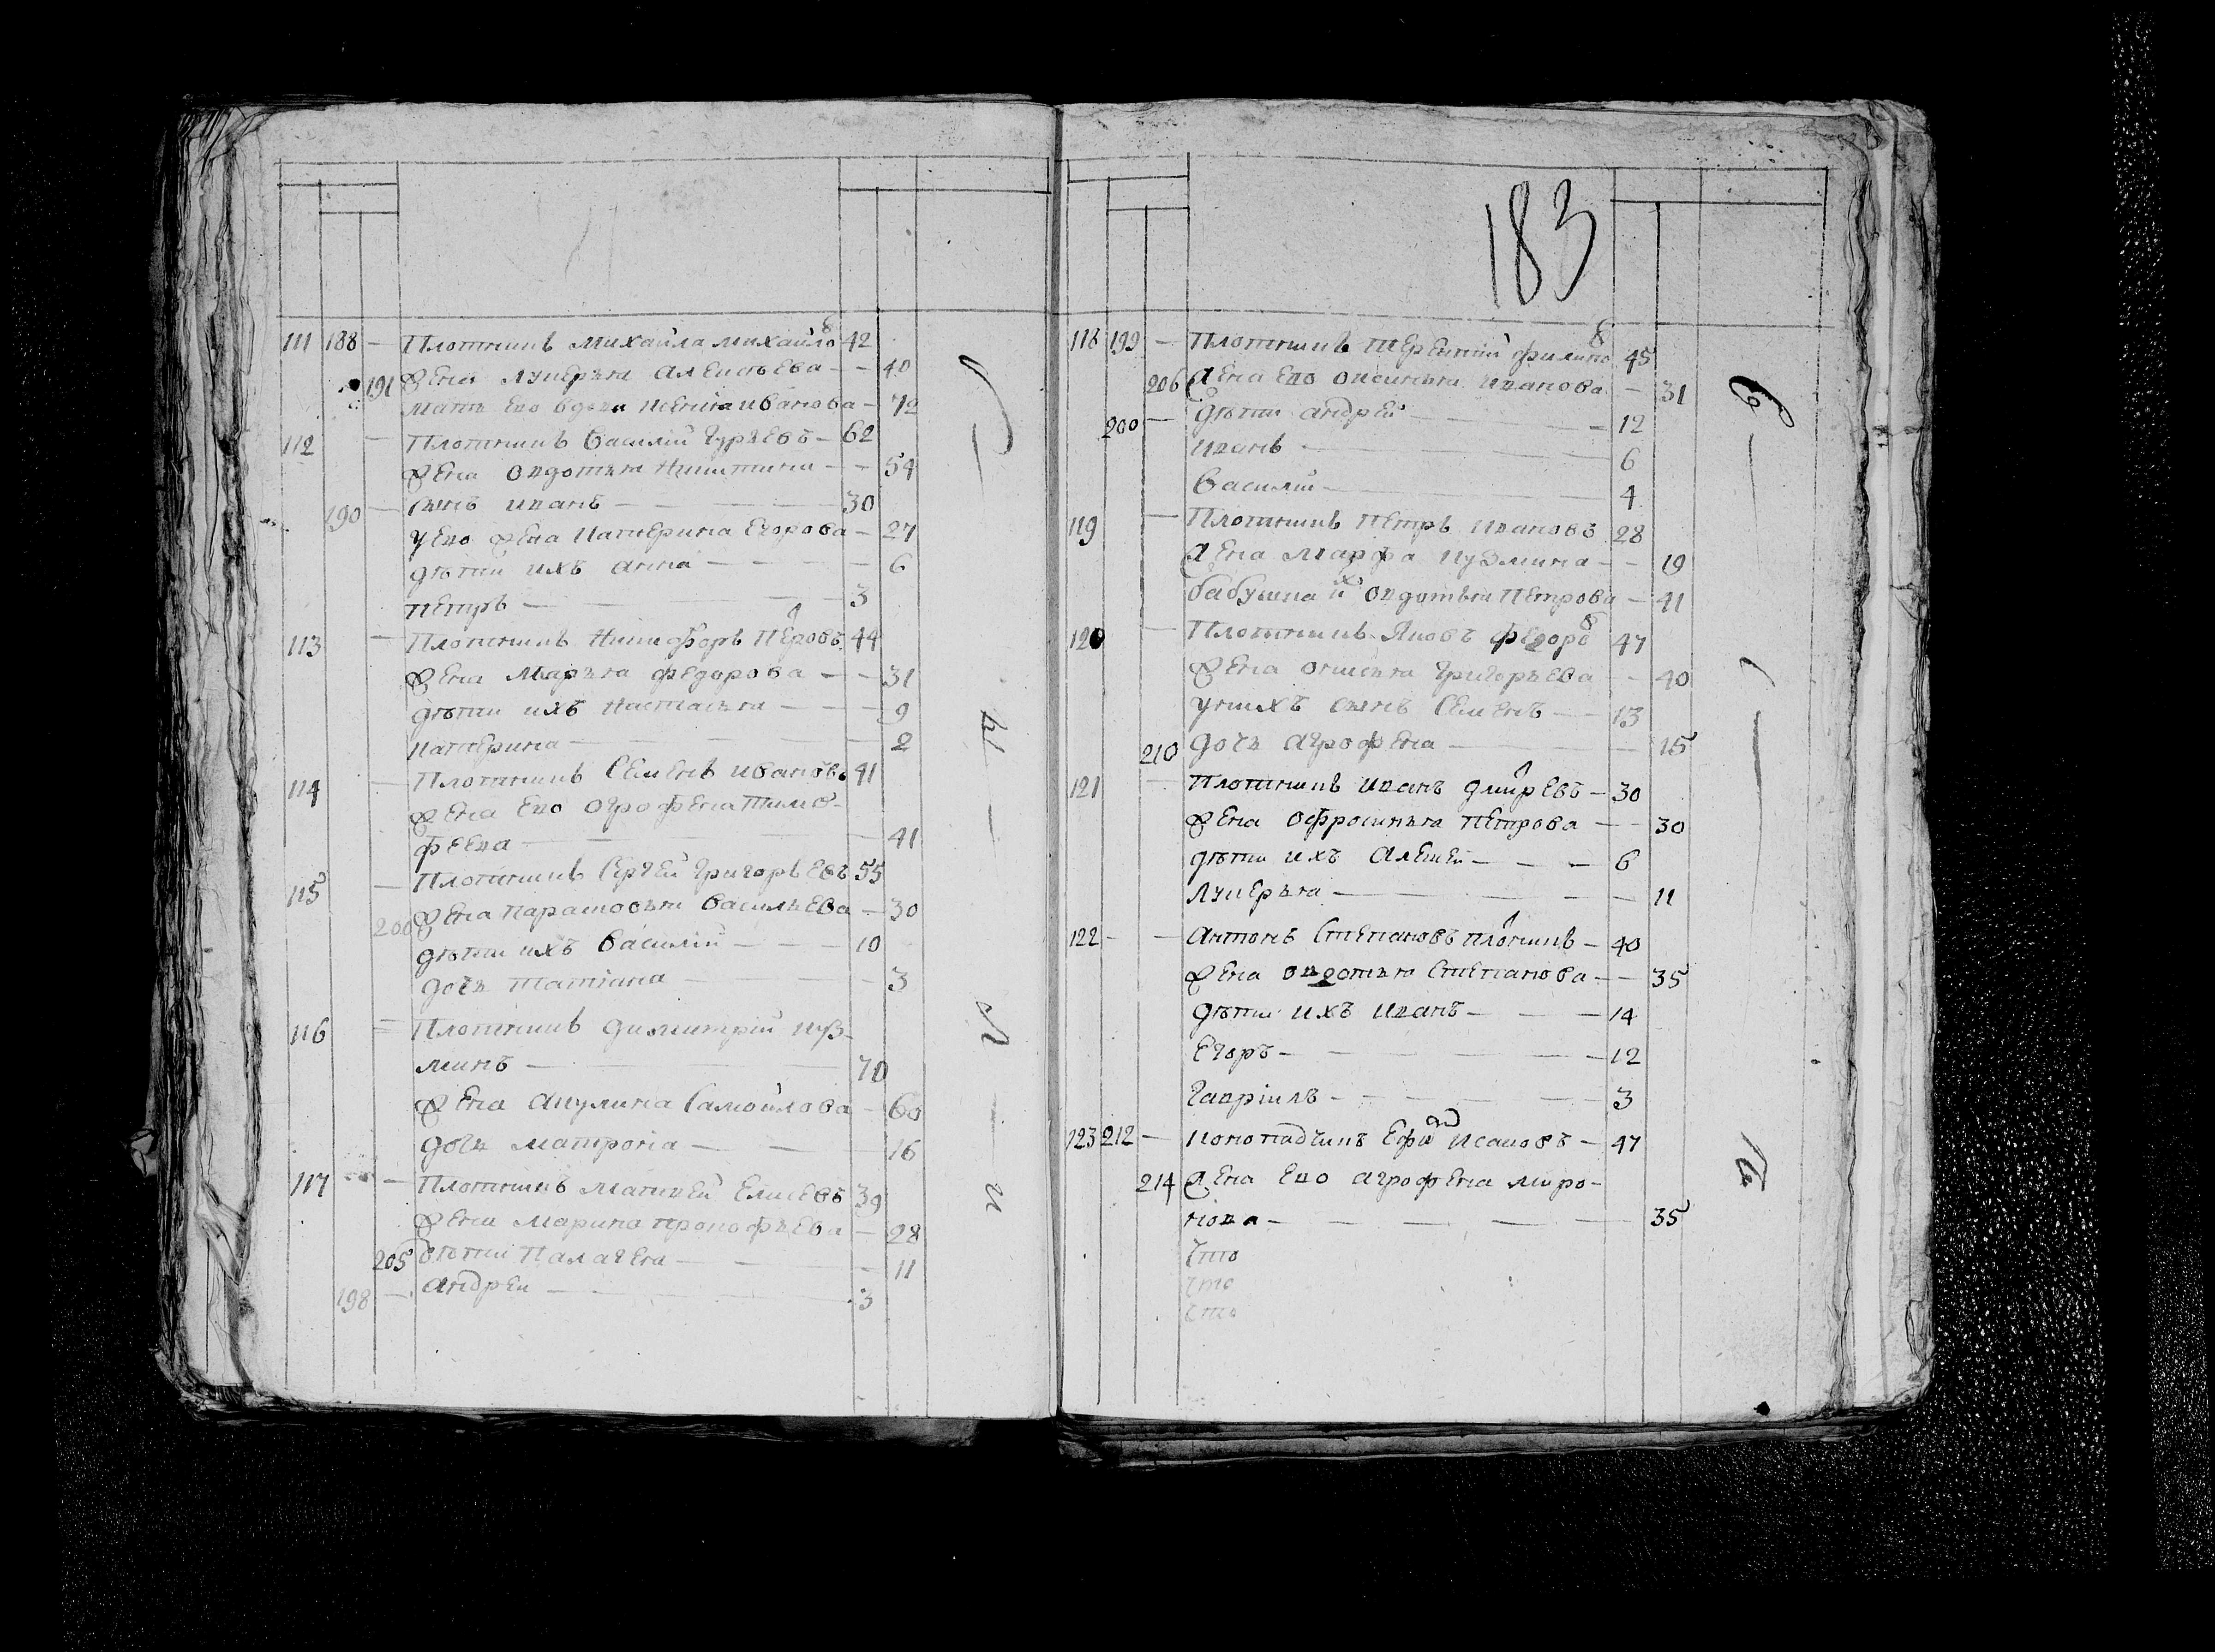 111 188 — Плотникъ Михаила Михайловъ 42
191 Жена Лукеръя Алексѣева — — 40
мать ево вдова Ксения Иванова — 70
112 — Плотникъ Василий Гурьевъ — 62
Жена Овдотья Никитина — — 54
190 — сынъ Иванъ — 30
у ево жена Катерина Егорова — 27
дѣти ихъ Анна — 6
Петръ — 3
113 — Плотникъ Никифоръ Петровъ 44
Жена Марья Федорова — — 31
дѣти ихъ Настасья — 9
Катерина — 2
114 — Плотникъ Семенъ Ивановъ 41
Жена ево Огрофена Тимо-
феева — 41
115 — Плотникъ Сергей Григорьевъ 55
200 Жена Парасковья Васильева — 30
дѣти ихъ Василий — 10
дочь Татіана — 3
116 = Плотникъ Димитрий Куз-
минъ — 70
Жена Акулина Самойлова — 60
дочь Матрона — 16
117 — Плотникъ Матвей Елисеевъ 39
Жена Марина Прокофьева — 28
205 дѣти Палагея — 11
198 — Андреи — 3
183
118 199 — Плотникъ Терентий Филипо 45
206 Жена ево Оксинья Иванова — 31
200 — дѣти Андрей — 12
Иванъ — 6
Василий — 4
119 — Плотникъ Петръ Ивановъ 28
Жена Марфа Кузмина — — 19
бабушка ихъ Овдотья Петрова — 41
120 — Плотникъ Яковъ Федоровъ 47
Жена Онисья Григорьева — 40
у нихъ сынъ Семенъ — 13
210 дочь Агрофена — 15
121 — Плотникъ Иванъ Дмитревъ — 30
Жена Офросинья Петрова — 30
дѣти ихъ Алексей — 6
Лукерья — 11
122 — — Антонъ Степановъ плотникъ — 40
Жена Овдотья Степанова — — 35
дѣти ихъ Иванъ — 14
Егоръ — 12
Гавріилъ — 3
123 212 — Конопадчикъ Ефим Исаковъ — 47
214 Жена ево Агрофена Миро-
нова — 35
что
что
что